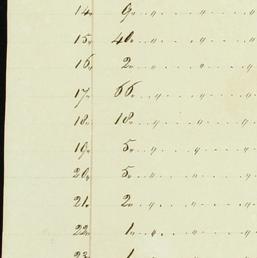 14„ 9„ „ „ „
15„ 40„ „ „ „
16„ 2„ „ „ „
17„ 66„ „ „ „
18„ 18„ „ „ „
19„ 5„ „ „ „
20„ 5„ „ „ „
21„ 2„ „ „ „
22„ 1„ „ „ „
23„ 1